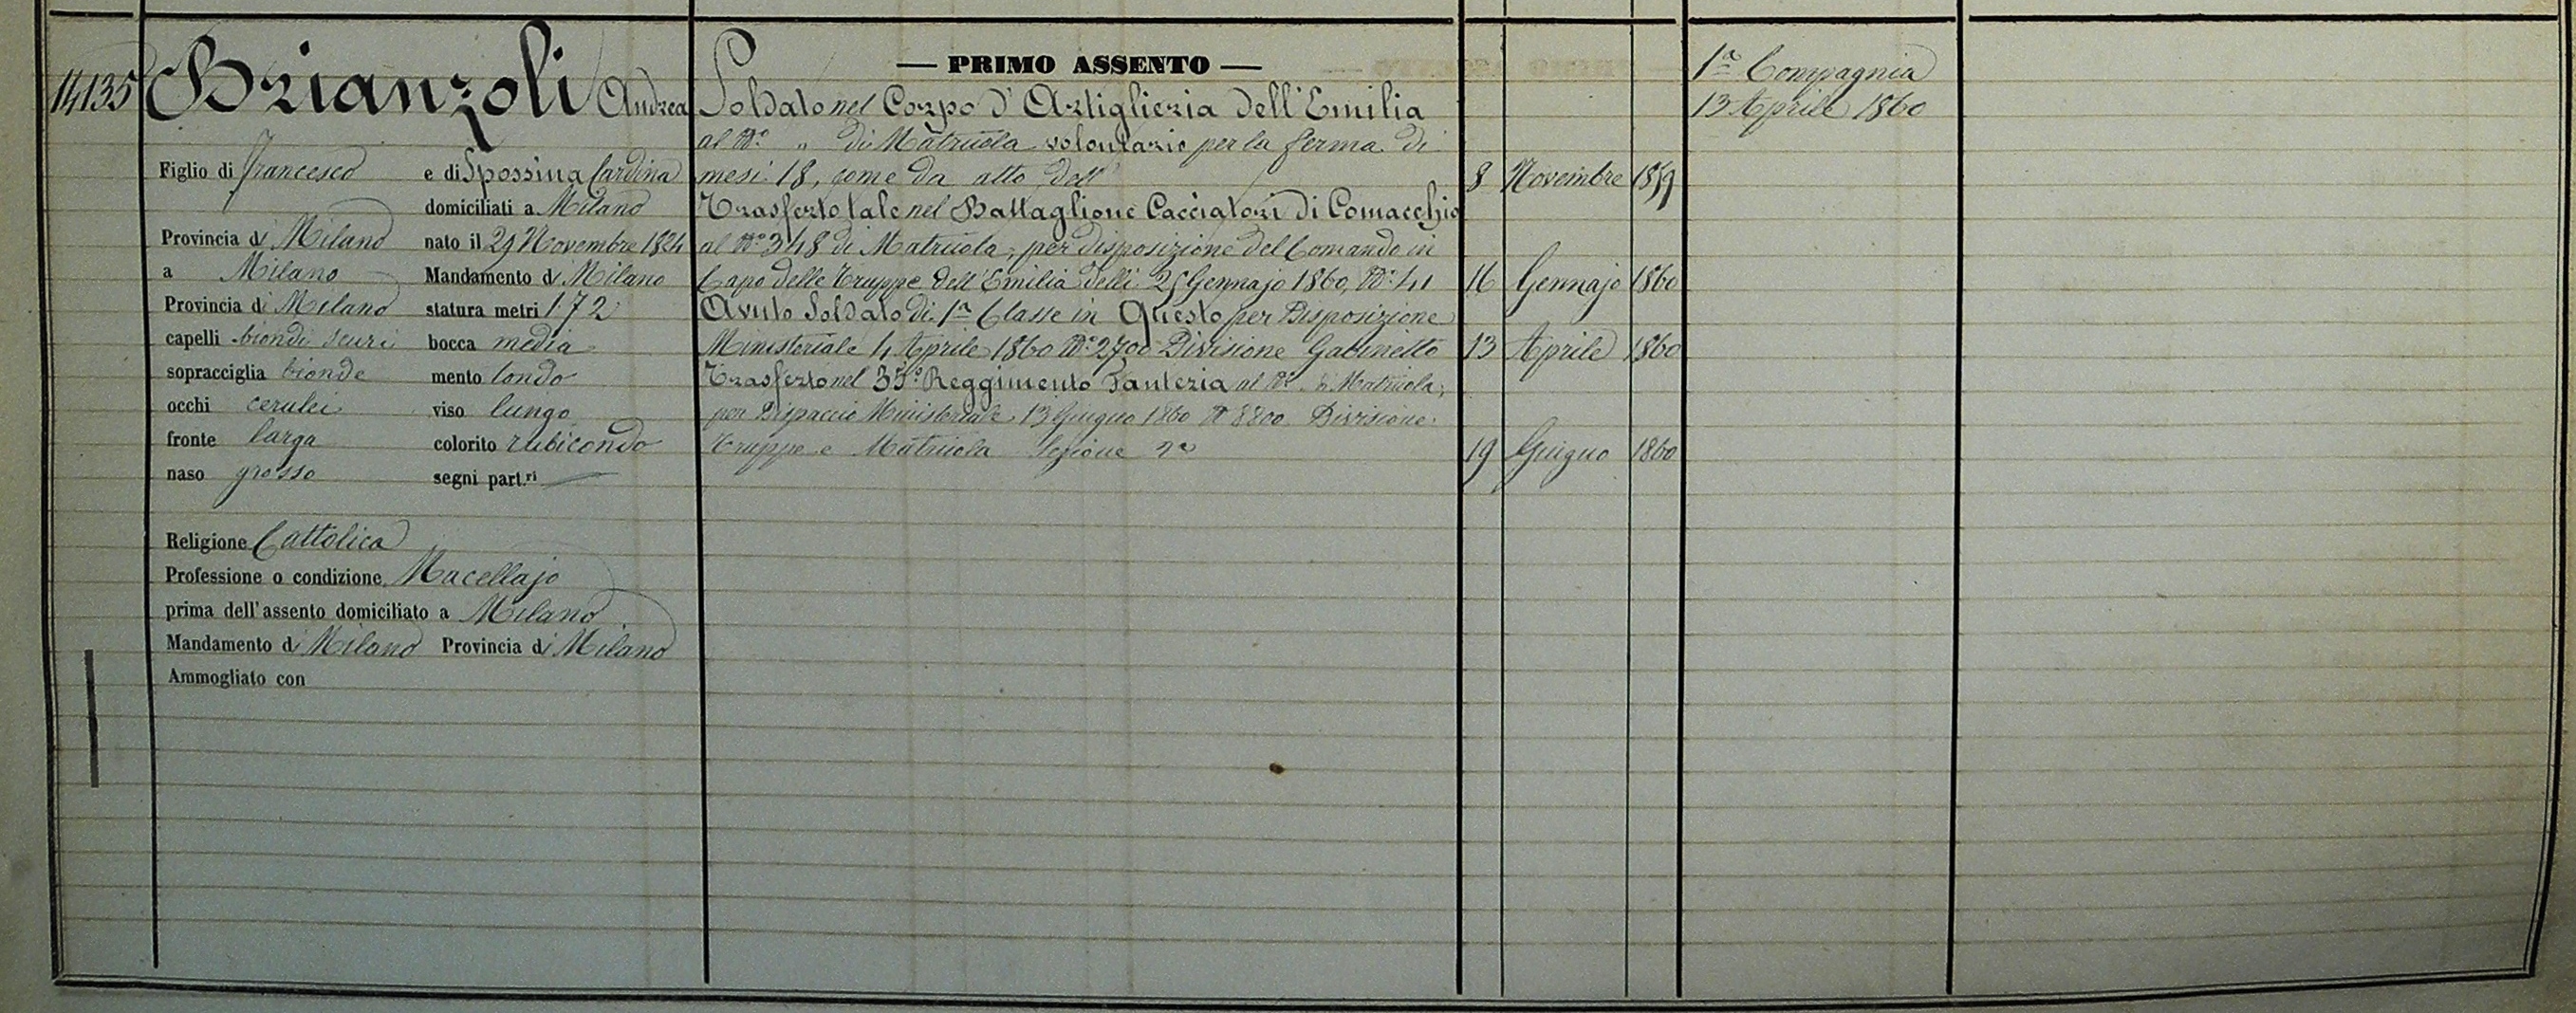 14135
Brianzoli Andrea
Figlio di Francesco e di Spossina Cardina
domiciliati a Milano
Provincia di Milano nato il 29 Novembre 1824
a Milano Mandamento di Milano
Provincia di Milano statura metri 1 72
capelli biondi scuri bocca media
sopracciglia bionde mento tondo
occhi cerulei viso lungo
fronte larga colorito rubicondo
naso grosso segni part.ri
Religione Cattolica
Professione o condizione Macellajo
prima dell'assento domiciliato a Milano
Mandamento di Milano Provincia di Milano
Ammogliato con
— PRIMO ASSENTO —
Soldato nel Corpo d'Artiglieria dell'Emilia
al N° " di Matricola volontario per la ferma di
mesi 18, come da atto dell' 8 Novembre 1859
Trasferto tale nel Battaglione Cacciatori di Comacchio
al N° 348 di Matricola, per disposizione del Comando in
Capo delle Truppe dell'Emilia delli 25 Gennajo 1860, N° 41 16 Gennajo 1860
Avuto Soldato di 1a Classe in Questo per Disposizione
Ministeriale 4 Aprile 1860 N° 2700 Divisione Gabinetto 13 Aprile 1860
Trasferto nel 35° Reggimento Fanteria al N° Matricola,
per Dispaccio Ministeriale 13 Giugno 1860 N 8800 Divisione
Truppe e Matricola Sezione 19 Giugno 1860
1a Compagnia
13 Aprile 1860